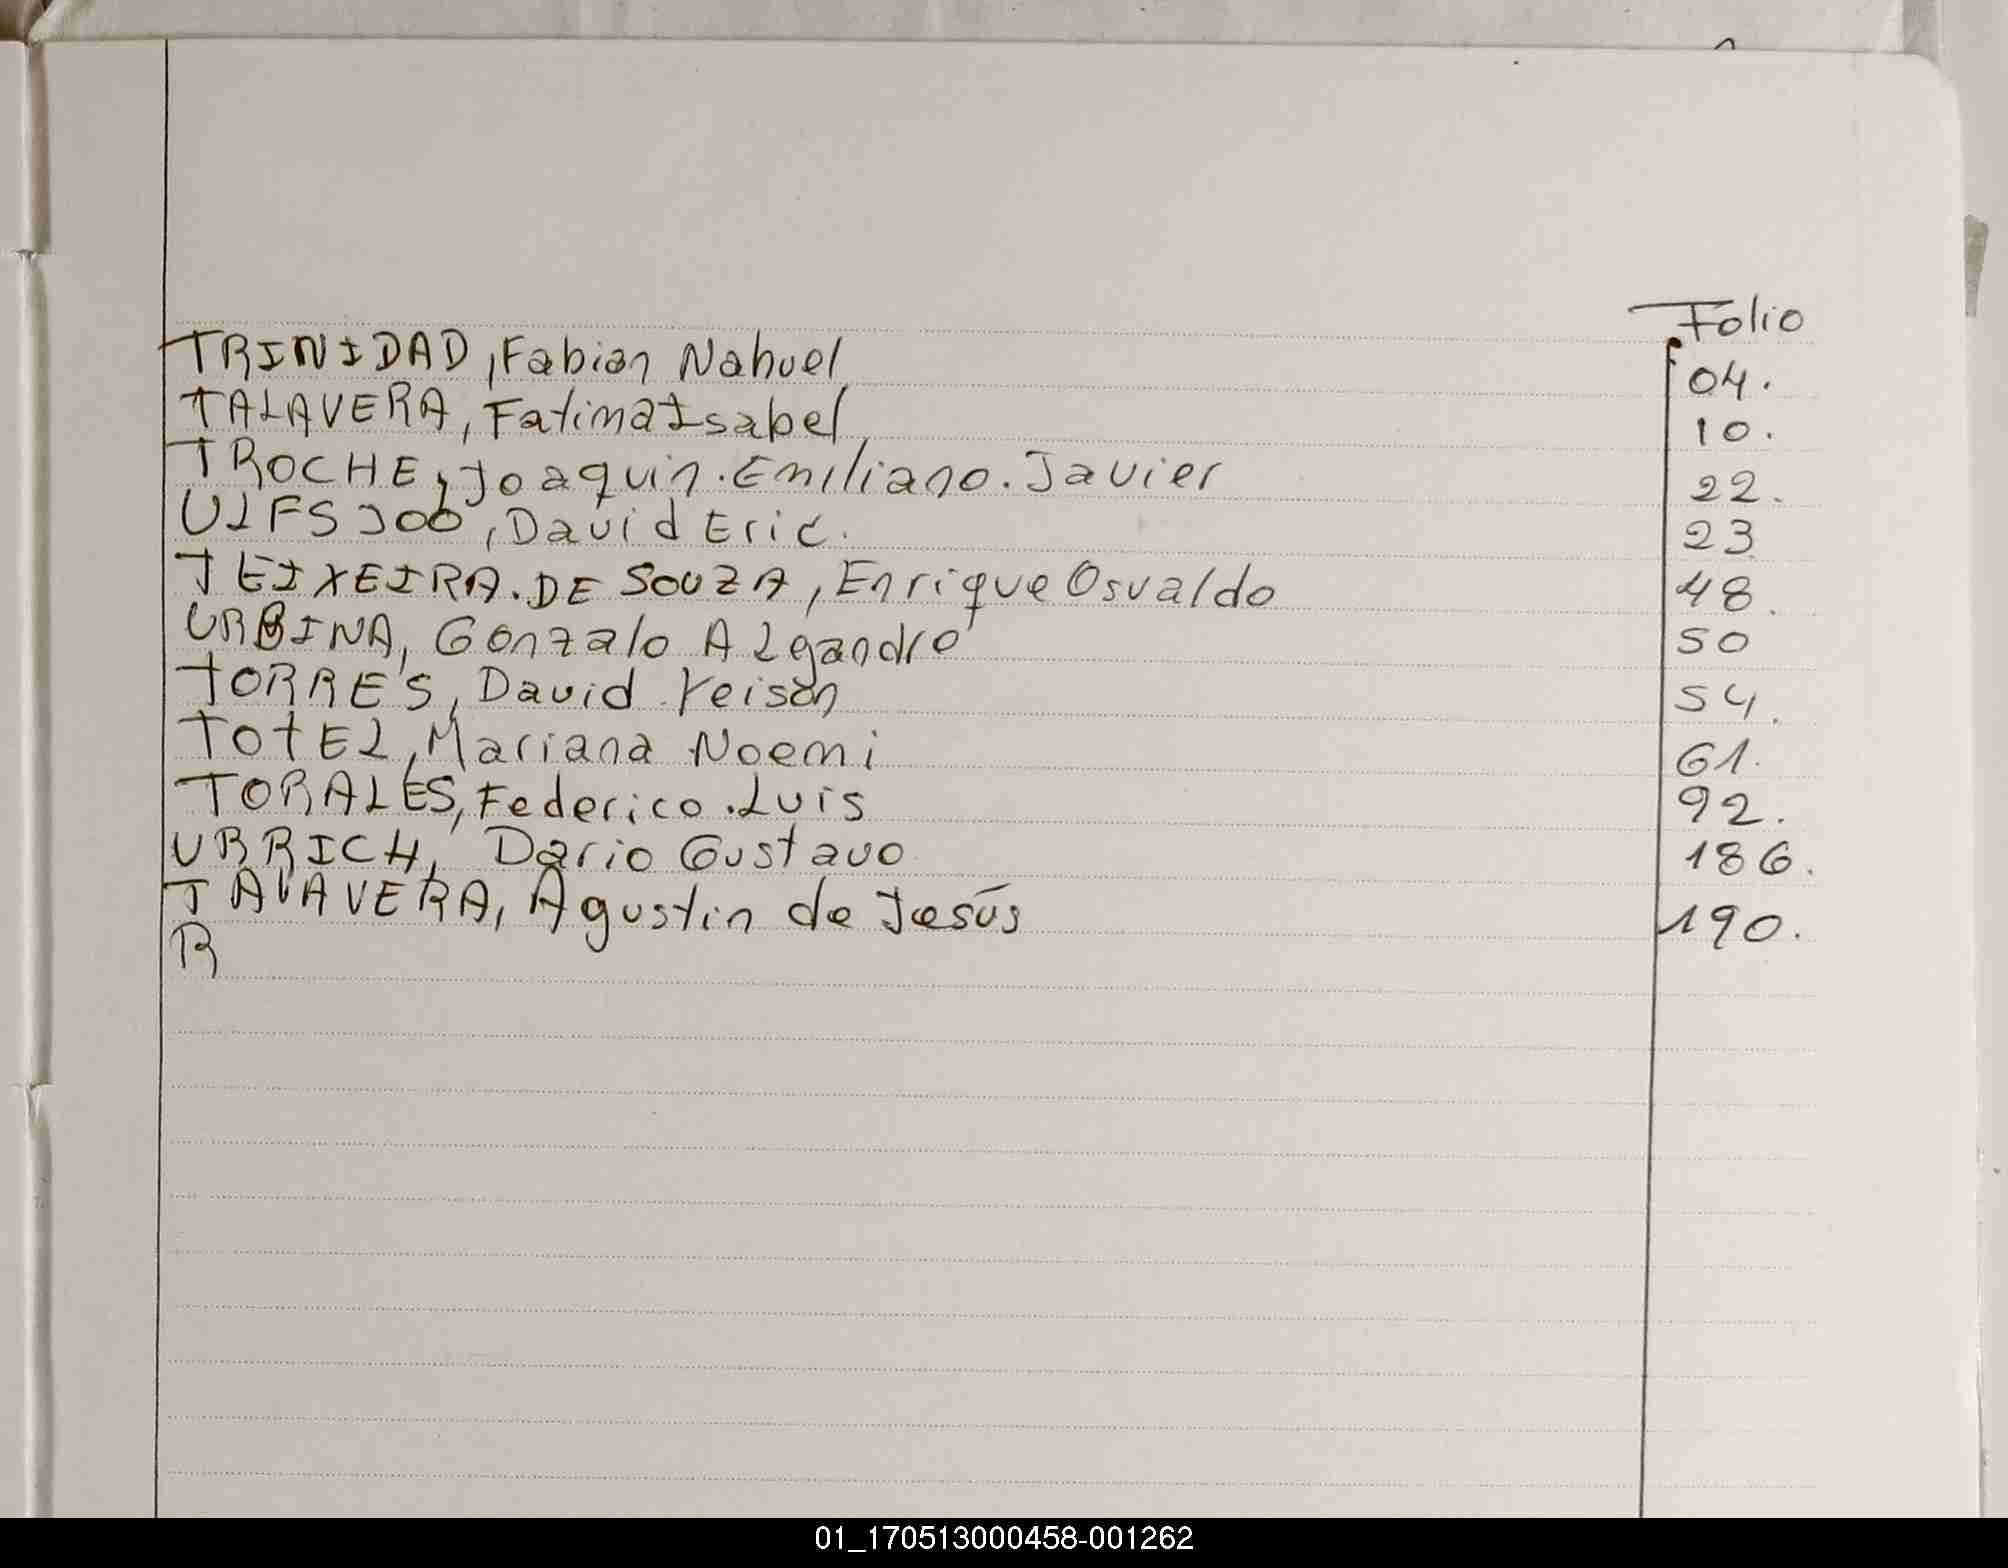 Folio
TRINIDAD, Fabian Nahuel 04.
TALAVERA, Fatima Isabel 10.
TROCHE, Joaquin. Emiliano. Javier 22.
David Eric. 23
TEIXEIRA. DE SOUZA, Enrique Osvaldo 48.
URBINA, Gonzalo 50
TORRES, David Yeison 54.
TOTEL, Mariana Noemi 61.
TORALES, Federico. Luis 92.
URRICH, Dario Gustavo 186.
Agustin de Jesús 190.
R
01_170513000458-001262